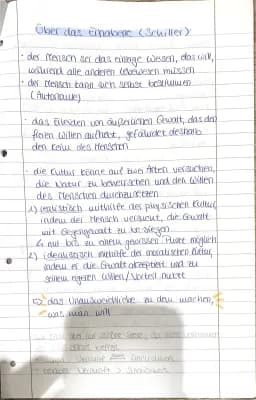 Über das Erhabene (Schiller)
· der Mensch sei das einzige Wesen, das will,
während alle anderen Lebewesen müssen
· der Mensch kann sich selbst bestimmen
(Autonomie)
· das Erleiden von äußerlicher Gewalt, das den
freien Willen aufhebt, gefährdet deshalb
den Kern des Menschen
· die Kultur könne auf zwei Arten versuchen,
die Natur zu beherrschen und den Willen
des Menschen durchzusetzen
1) realistisch mithilfe der physischen Kultur,
indem der Mensch versucht, die Gewalt
mit Gegengewalt zu besiegen
↳ nur bis zu einem gewissen Punkt möglich
2) idealistisch mithilfe der moralischen Kultur,
indem er die Gewalt akzeptiert und zu
seinem eigenen Willen/Vorteil nutzt
⇨ das Unausweichliche zu dem machen,
was man will